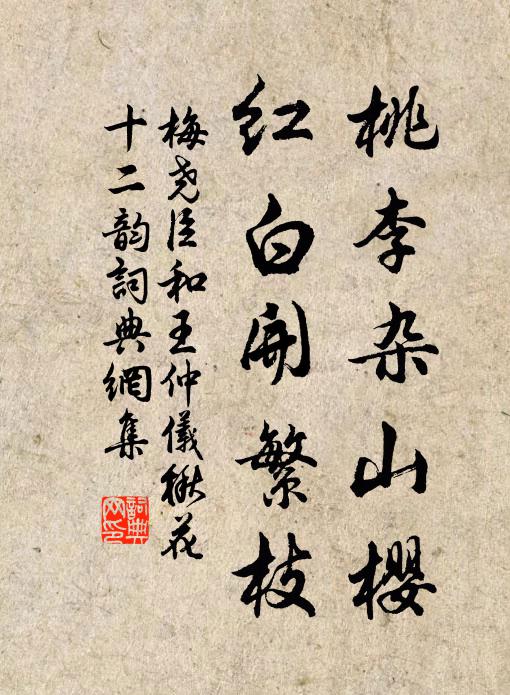 桃李杂山櫻
红白開繁枝
梅尧臣和王仲儀楸花
十二韵詞典網集
詞典網印